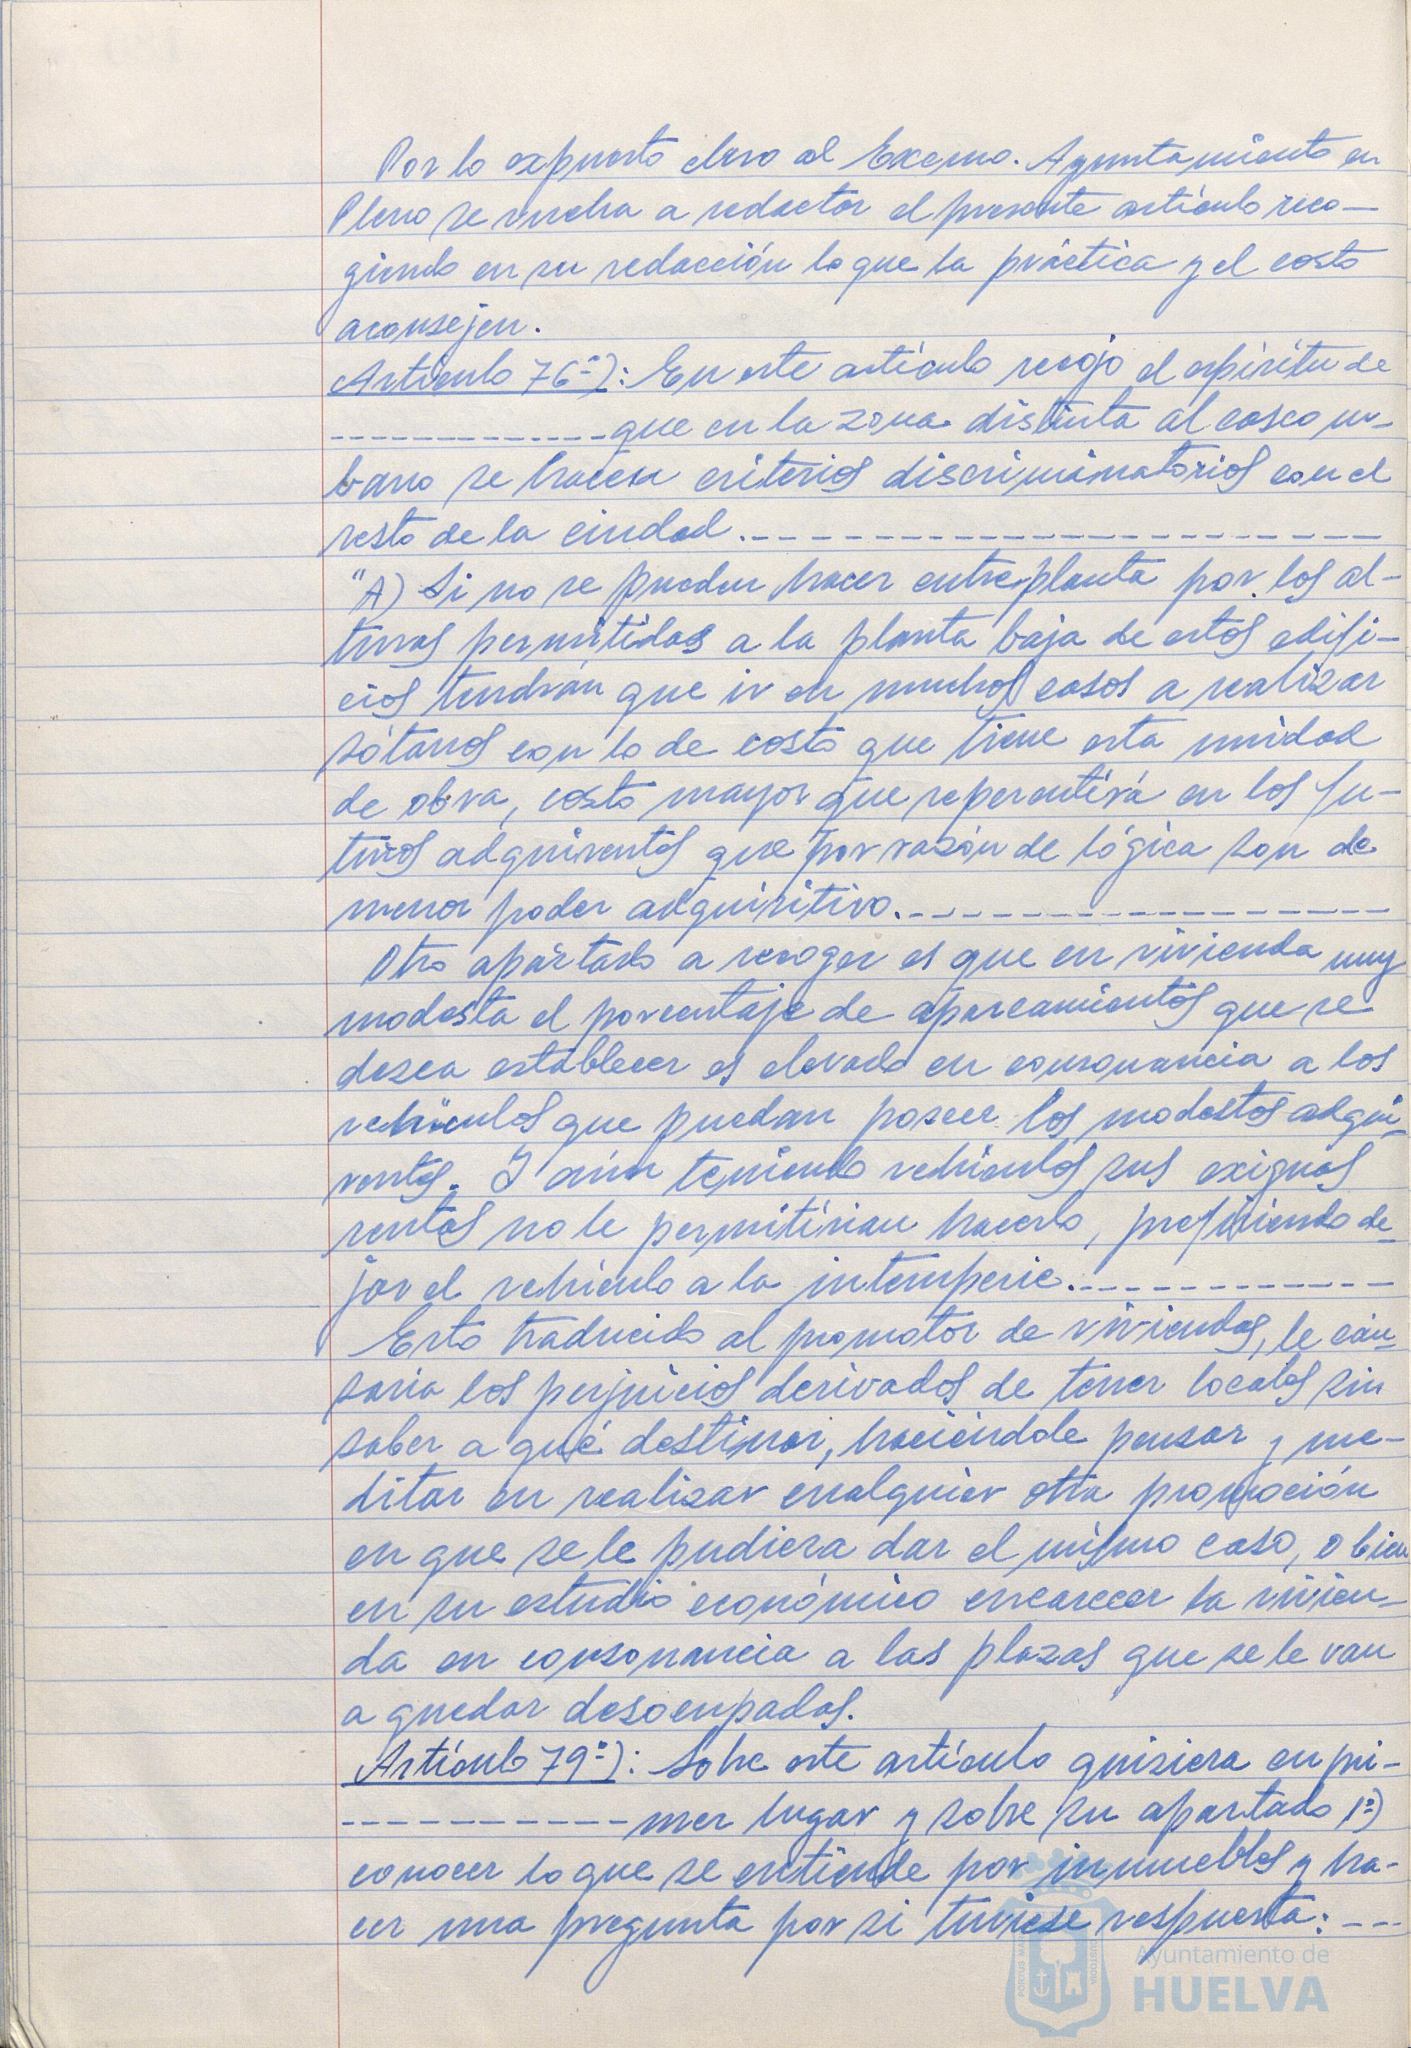 Por lo expuesto elevo al Excmo. Ayuntamiento en
Pleno se vuelva a redactar el presente artículo reco-
giendo en su redacción lo que la práctica y el costo
aconsejen.
Artículo 76º): En este artículo recojo el espíritu de
que en la zona distinta al casco ur-
bano se hacen criterios discriminatorios con el
resto de la ciudad.
"A) Si no se pueden hacer entreplanta por los al-
turas permitidas a la planta baja de estos edifi-
cios tendrán que ir en muchos casos a realizar
sótanos con lo de costo que tiene esta unidad
de obra, costo mayor que repercutirá en los fu-
turos adquirentes que por razón de lógica son de
menor poder adquisitivo.
Otro apartado a recoger es que en vivienda muy
modesta el porcentaje de aparcamientos que se
desea establecer es elevado en consonancia a los
vehículos que puedan poseer los modestos adqui-
rentes. Y aún teniendo vehículos sus exiguas
rentas no le permitirían hacerlo, prefiriendo de-
jar el vehículo a la intemperie.
Esto traducido al promotor de viviendas, le cau-
saría los perjuicios derivados de tener locales sin
saber a qué destinar, haciéndole pensar y me-
ditar en realizar cualquier otra promoción
en que se le pudiera dar el mismo caso, o bien
en su estudio económico encarecer la vivien-
da en consonancia a las plazas que se le van
a quedar desocupadas.
Artículo 79º): Sobre este artículo quisiera en pri-
mer lugar y sobre su apartado 1º)
conocer lo que se entiende por inmuebles y ha-
cer una pregunta por si tuviese respuesta:
Ayuntamiento de
HUELVA